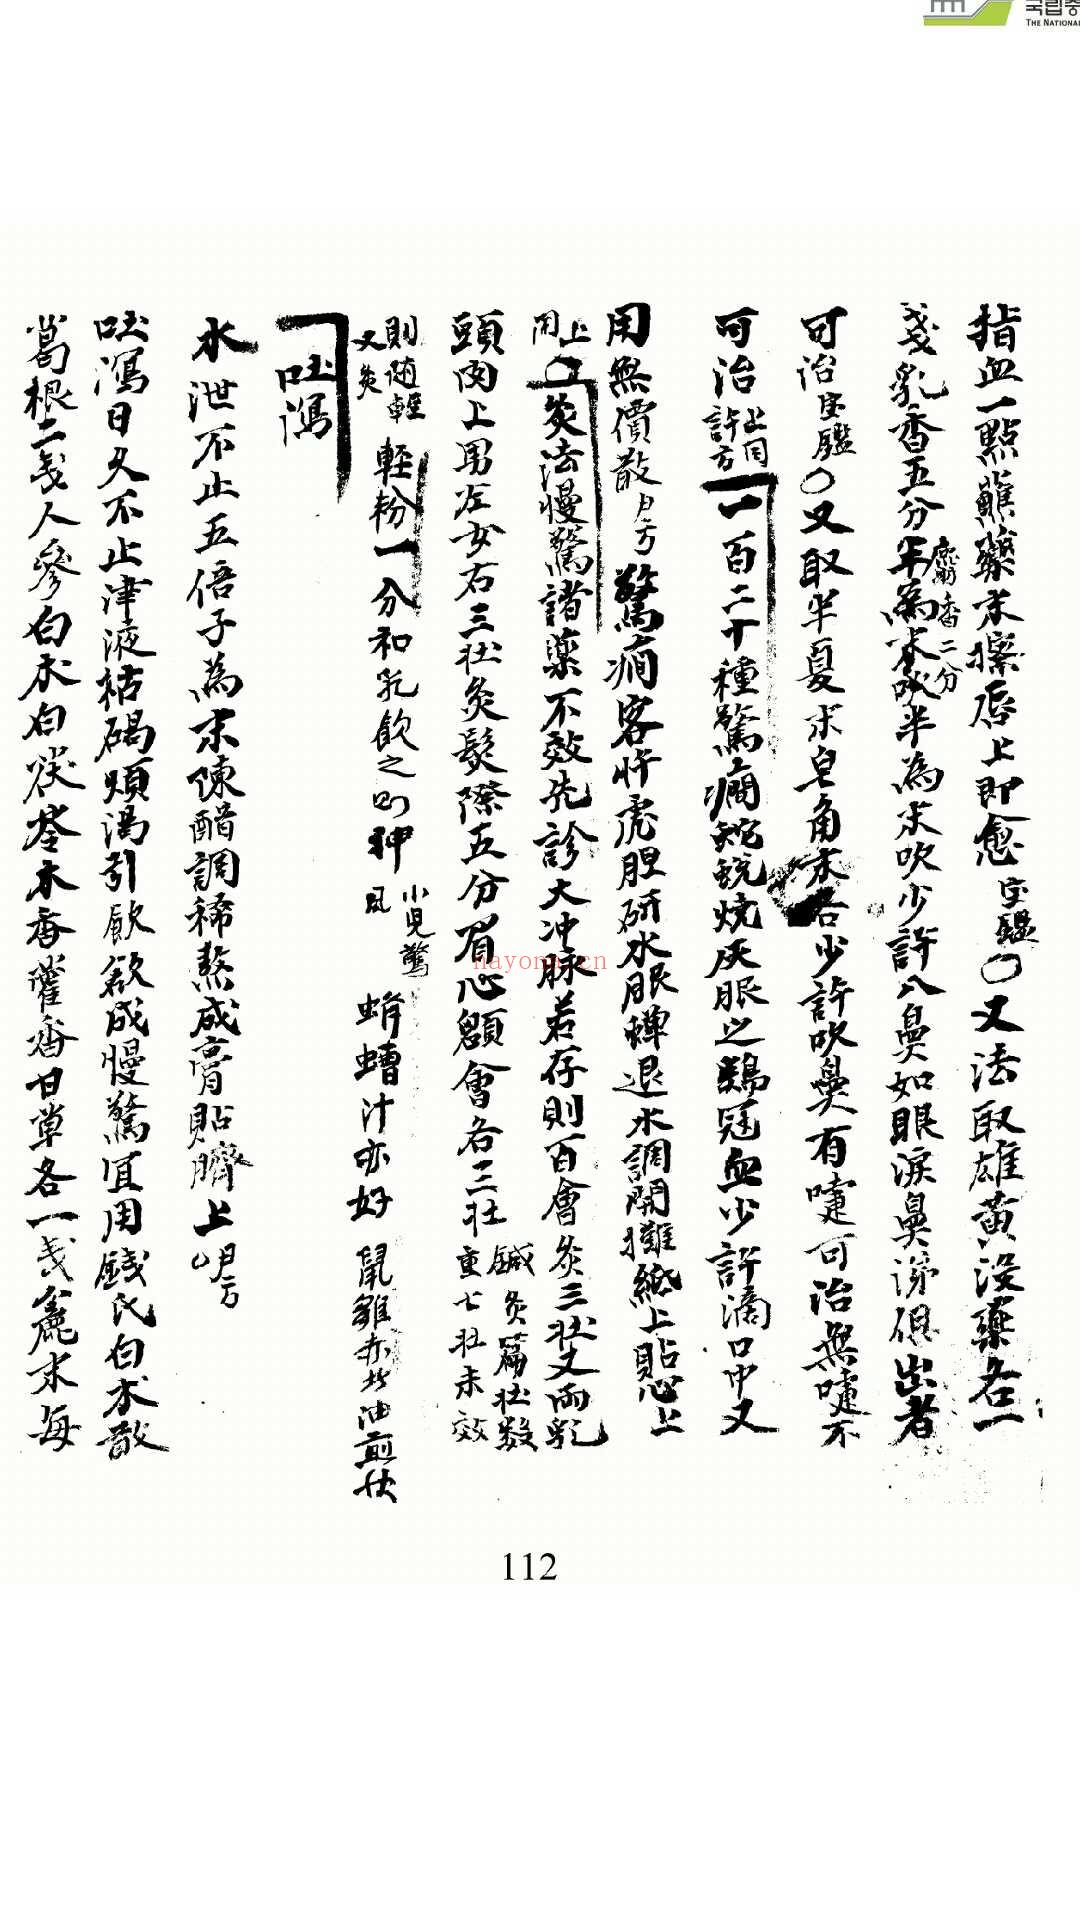 국립중
THE NATIONAL
指血一點蘸藥末擦唇上即愈 宝鑑 ○又法取雄黃沒藥各一
戔乳香五分 麝香二分 半為末吹少許入鼻如眼淚鼻涕俱出者
可治 宝鑑 ○又取半夏末皂角末各少許吹鼻有嚏可治無嚏不
可治 上同 許方 一百二十種驚癇蛇蛻燒灰服之鷄冠血少許滴口中又
用無價散 驚癇客忤虎胆研水服蟬退水調開攤紙上貼心上
上同 ○灸法慢驚諸藥不效先診大冲脉若存則百會灸三壯又兩乳
頭肉上男左女右三壯灸髮際五分眉心顖會各三壯 鍼灸篇壯数 重七壯未效
則随輕 又灸 輕粉一分和乳飲之 小児驚風 蠐螬汁亦好
吐瀉
水泄不止五倍子為末陳醋調稀熬成膏貼臍上
吐瀉日久不止津液枯碣煩渴引飮欲成慢驚宜用錢氏白朮散
葛根二戔人參白朮白茯苓木香藿香甘草各一戔麁末每
112
nayona.cn